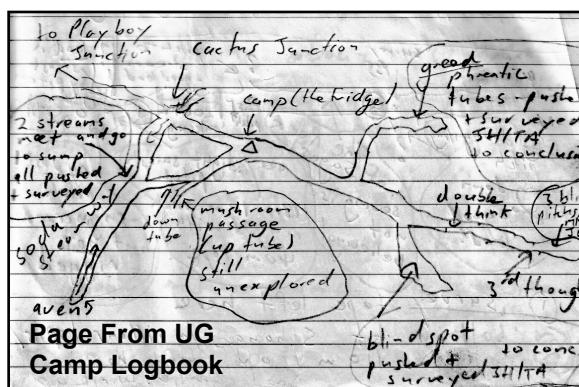 to Playboy
Junction
Cactus Junction
camp (the fridge)
phreatic
tubes - pushed
+ surveyed
SH/TA
to conclus
2 streams
meet and go
to sump
all pushed
+ surveyed
down
tube
mushroom
passage
(up tube)
still
unexplored
double
think
3rd though
avens
blind spot
pushed +
surveyed SH/TA
to conc
Page From UG
Camp Logbook